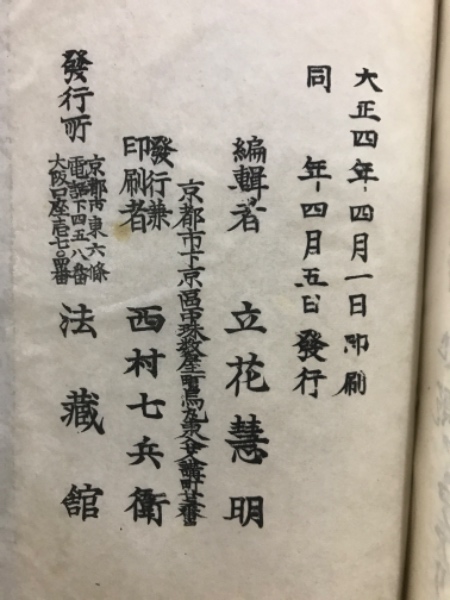 大正四年四月一日印刷
同　年四月五日發行
編輯者　立花慧明
京都市下京區中珠数屋町烏丸東入
發行兼
印刷者　西村七兵衛
發行所
京都市東六條
電話下四五八番
大阪口座壱七〇四番
法藏館